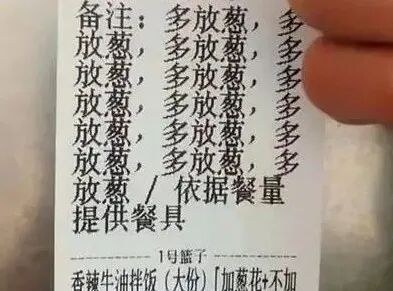 备注：多放葱，多
放葱，多放葱，多
放葱，多放葱，多
放葱，多放葱，多
放葱，多放葱，多
放葱，多放葱，多
放葱 / 依据餐量
提供餐具
1号篮子
香辣牛油拌饭（大份）[加葱花+不加